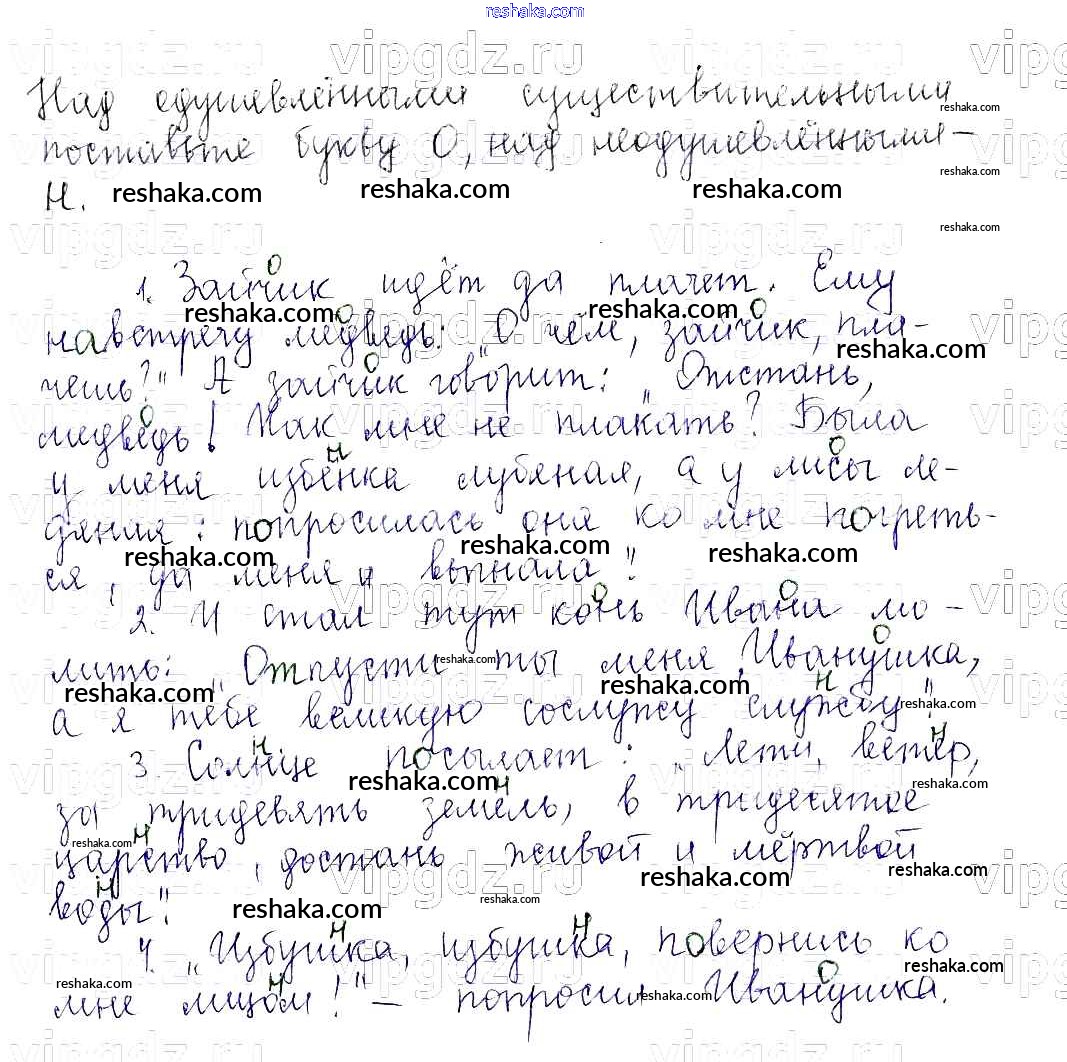 reshaka.com
Над одушевлёнными существительными
поставьте букву О, над неодушевлёнными –
Н.
1. Зайчик идёт да плачет. Ему
навстречу медведь: „О чём, зайчик, пла-
чешь?" А зайчик говорит: „Отстань,
медведь! Как мне не плакать? Была
у меня избёнка лубяная, а у лисы ле-
дяная: попросилась она ко мне погреть-
ся, да меня и выгнала".
2. И стал тут конь Ивана мо-
лить: „Отпусти ты меня, Иванушка,
а я тебе великую сослужу службу".
3. Солнце посылает: „Лети, ветер,
за тридевять земель, в тридесятое
царство, достань живой и мёртвой
воды".
4. „Избушка, избушка, повернись ко
мне лицом!" – попросил Иванушка.